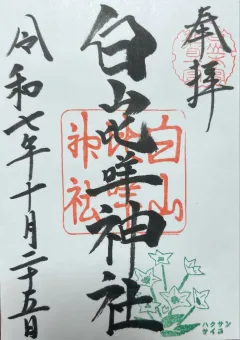 奉拝
白山比咩神社
白山
比咩
神社
令和七年十月二十五日
ハクサン
サイコ